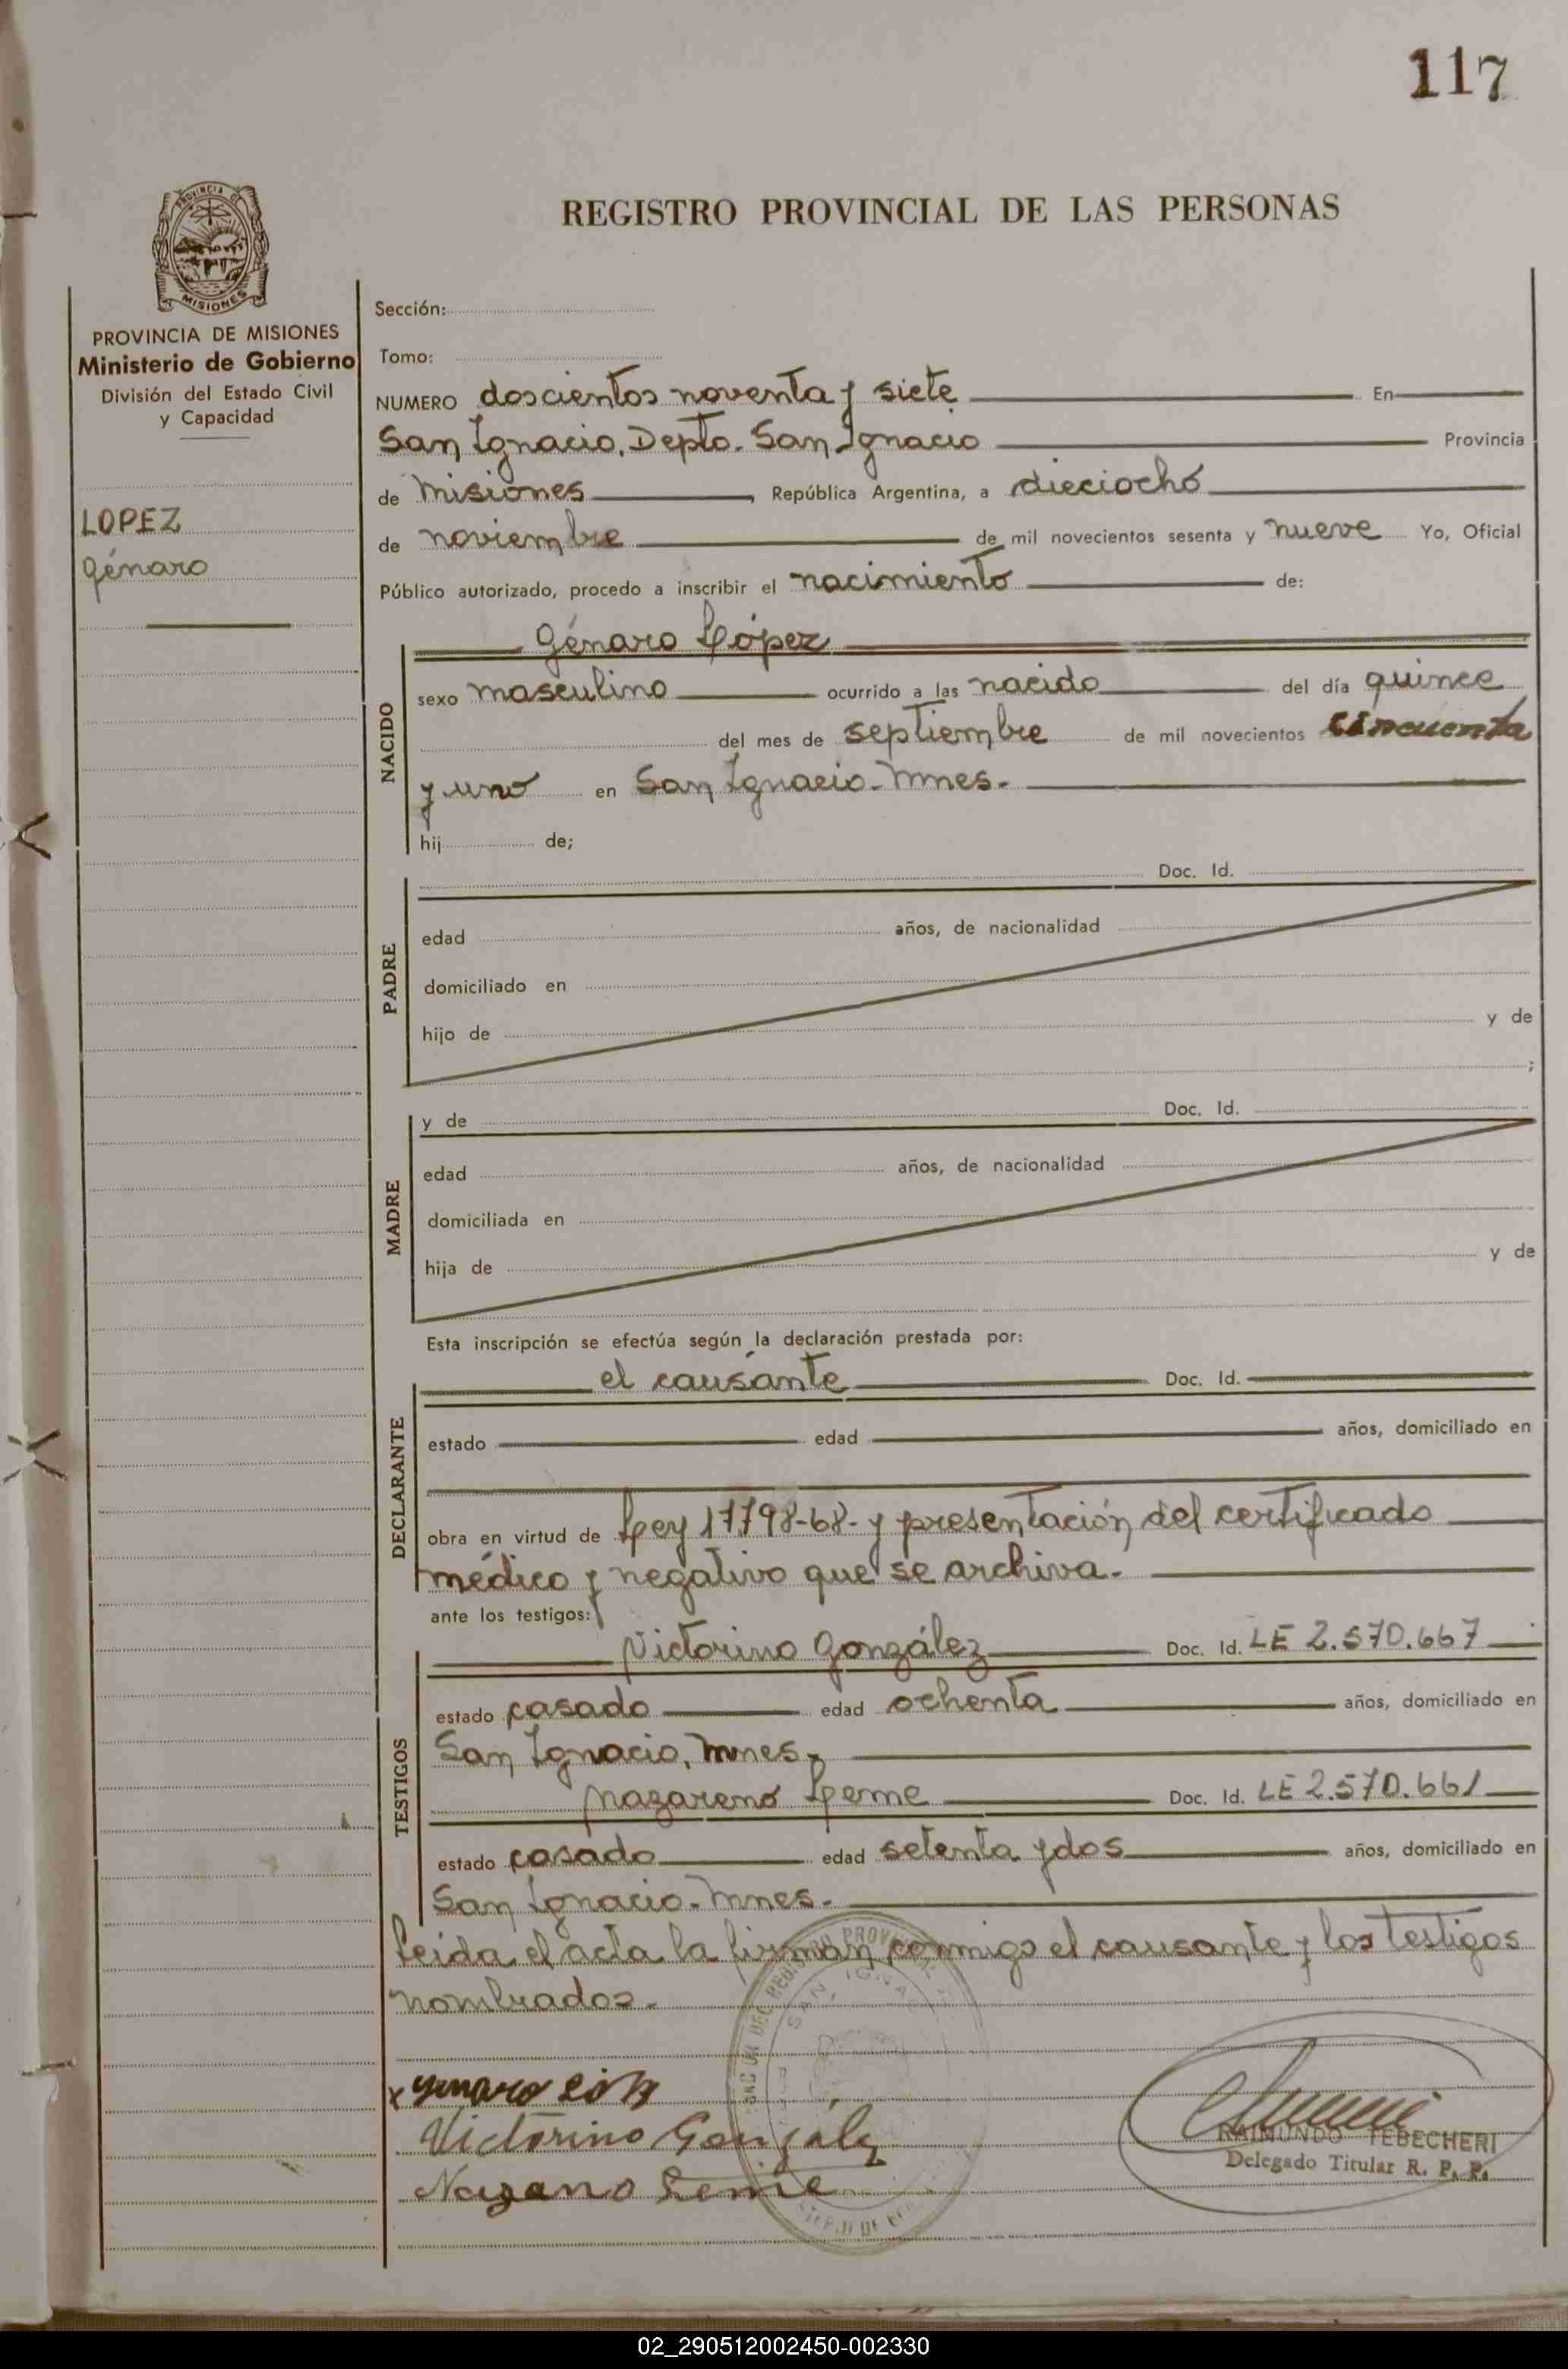 117
PROVINCIA D
MISIONES
REGISTRO PROVINCIAL DE LAS PERSONAS
PROVINCIA DE MISIONES
Ministerio de Gobierno
División del Estado Civil
y Capacidad
LOPEZ
Génaro
Sección:
Tomo:
NUMERO doscientos noventa y siete En
San Ignacio. Depto. San Ignacio Provincia
de Misiones, República Argentina, a dieciocho
de noviembre de mil novecientos sesenta y nueve Yo, Oficial
Público autorizado, procedo a inscribir el nacimiento de:
Génaro López
NACIDO
sexo masculino ocurrido a las nacido del día quince
del mes de septiembre de mil novecientos cincuenta
y uno en San Ignacio - Mnes.
hij de;
PADRE
Doc. Id.
edad años, de nacionalidad
domiciliado en
hijo de y de
;
MADRE
y de Doc. Id.
edad años, de nacionalidad
domiciliada en
hija de y de
Esta inscripción se efectúa según la declaración prestada por:
DECLARANTE
el causante Doc. Id.
estado edad años, domiciliado en
obra en virtud de Ley 17798-68- y presentación del certificado
médico y negativo que se archiva.
ante los testigos:
TESTIGOS
Victorino González Doc. Id. LE 2.570.667
estado casado edad ochenta años, domiciliado en
San Ignacio, Mnes.
Nazareno Leme Doc. Id. LE 2.570.661
estado casado edad setenta y dos años, domiciliado en
San Ignacio - Mnes.
Leida el acta la firman conmigo el causante y los testigos
nombrados.
x Genaro
Victorino Gonzalez
Leme
RAIMUNDO TEBECHERI
Delegado Titular R. P. P.
02_290512002450-002330